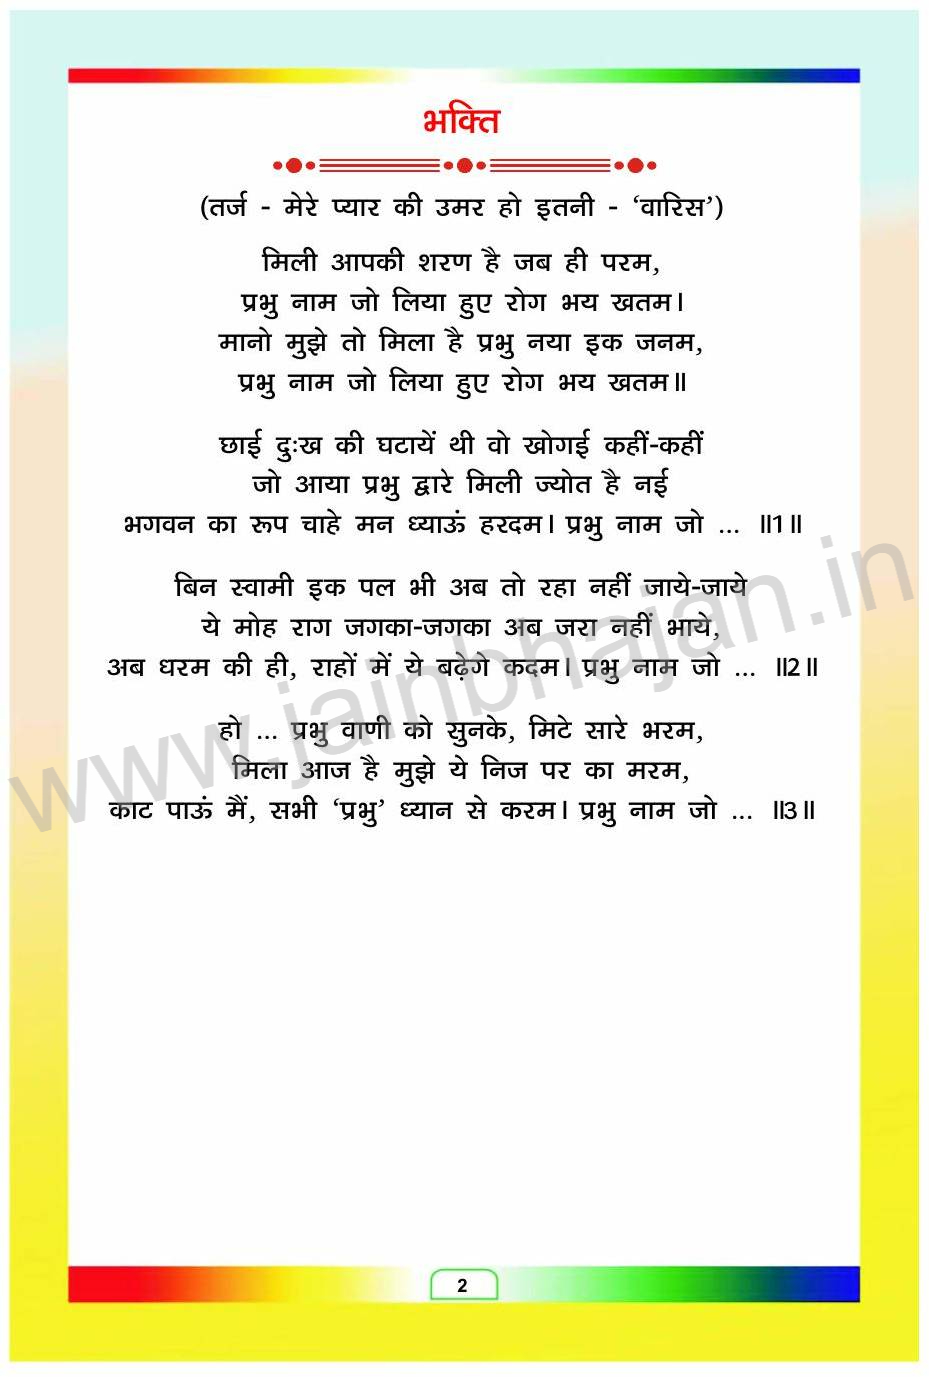 भक्ति
(तर्ज - मेरे प्यार की उमर हो इतनी - ‘वारिस’)
मिली आपकी शरण है जब ही परम,
प्रभु नाम जो लिया हुए रोग भय खतम।
मानो मुझे तो मिला है प्रभु नया इक जनम,
प्रभु नाम जो लिया हुए रोग भय खतम॥
छाई दुःख की घटायें थी वो खोगई कहीं-कहीं
जो आया प्रभु द्वारे मिली ज्योत है नई
भगवन का रूप चाहे मन ध्याऊं हरदम। प्रभु नाम जो ... ॥1॥
बिन स्वामी इक पल भी अब तो रहा नहीं जाये-जाये
ये मोह राग जगका-जगका अब जरा नहीं भाये,
अब धरम की ही, राहों में ये बढ़ेगे कदम। प्रभु नाम जो ... ॥2॥
हो ... प्रभु वाणी को सुनके, मिटे सारे भरम,
मिला आज है मुझे ये निज पर का मरम,
काट पाऊं मैं, सभी ‘प्रभु’ ध्यान से करम। प्रभु नाम जो ... ॥3॥
www.jainbhajan.in
2